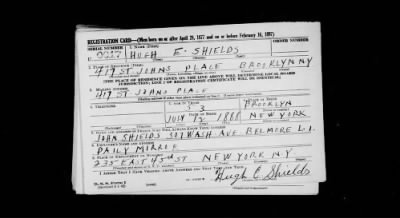 REGISTRATION CARD—(Men born on or after April 28, 1877 and on or before February 16, 1897)
SERIAL NUMBER 1. NAME (Print) ORDER NUMBER
U HUGH E. SHIELDS
2. PLACE OF RESIDENCE (Print)
419 ST JOHNS PLACE BROOKLYN NY
[THE PLACE OF RESIDENCE GIVEN ON THE LINE ABOVE WILL DETERMINE LOCAL BOARD
JURISDICTION; LINE 2 OF REGISTRATION CERTIFICATE WILL BE IDENTICAL]
3. MAILING ADDRESS
419 ST JOHNS PLACE
4. TELEPHONE 5. AGE IN YEARS 6. PLACE OF BIRTH
53 BROOKLYN
DATE OF BIRTH
JULY 1888 NEW YORK
7. NAME AND ADDRESS OF PERSON WHO WILL ALWAYS KNOW YOUR ADDRESS
JOHN SHIELDS WASH AVE BELMORE L.I.
8. EMPLOYER'S NAME AND ADDRESS
DAILY MIRROR
9. PLACE OF EMPLOYMENT OR BUSINESS
235 EAST 45 ST NEW YORK NY
I AFFIRM THAT I HAVE VERIFIED ABOVE ANSWERS AND THAT THEY ARE TRUE.
D. S. S. Form 1
Hugh E Shields